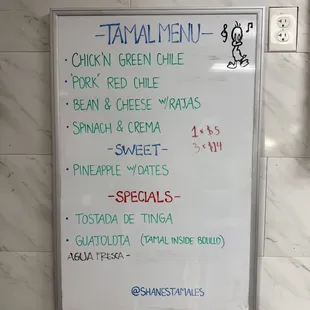 -TAMAL MENU-
• CHICK'N GREEN CHILE
• 'PORK' RED CHILE
• BEAN & CHEESE W/RAJAS
• SPINACH & CREMA
1 x $5
3 x $14
-SWEET-
• PINEAPPLE W/DATES
-SPECIALS-
• TOSTADA DE TINGA
• GUAJOLOTA (TAMAL INSIDE BOLILLO)
AGUA FRESCA -
@SHANESTAMALES